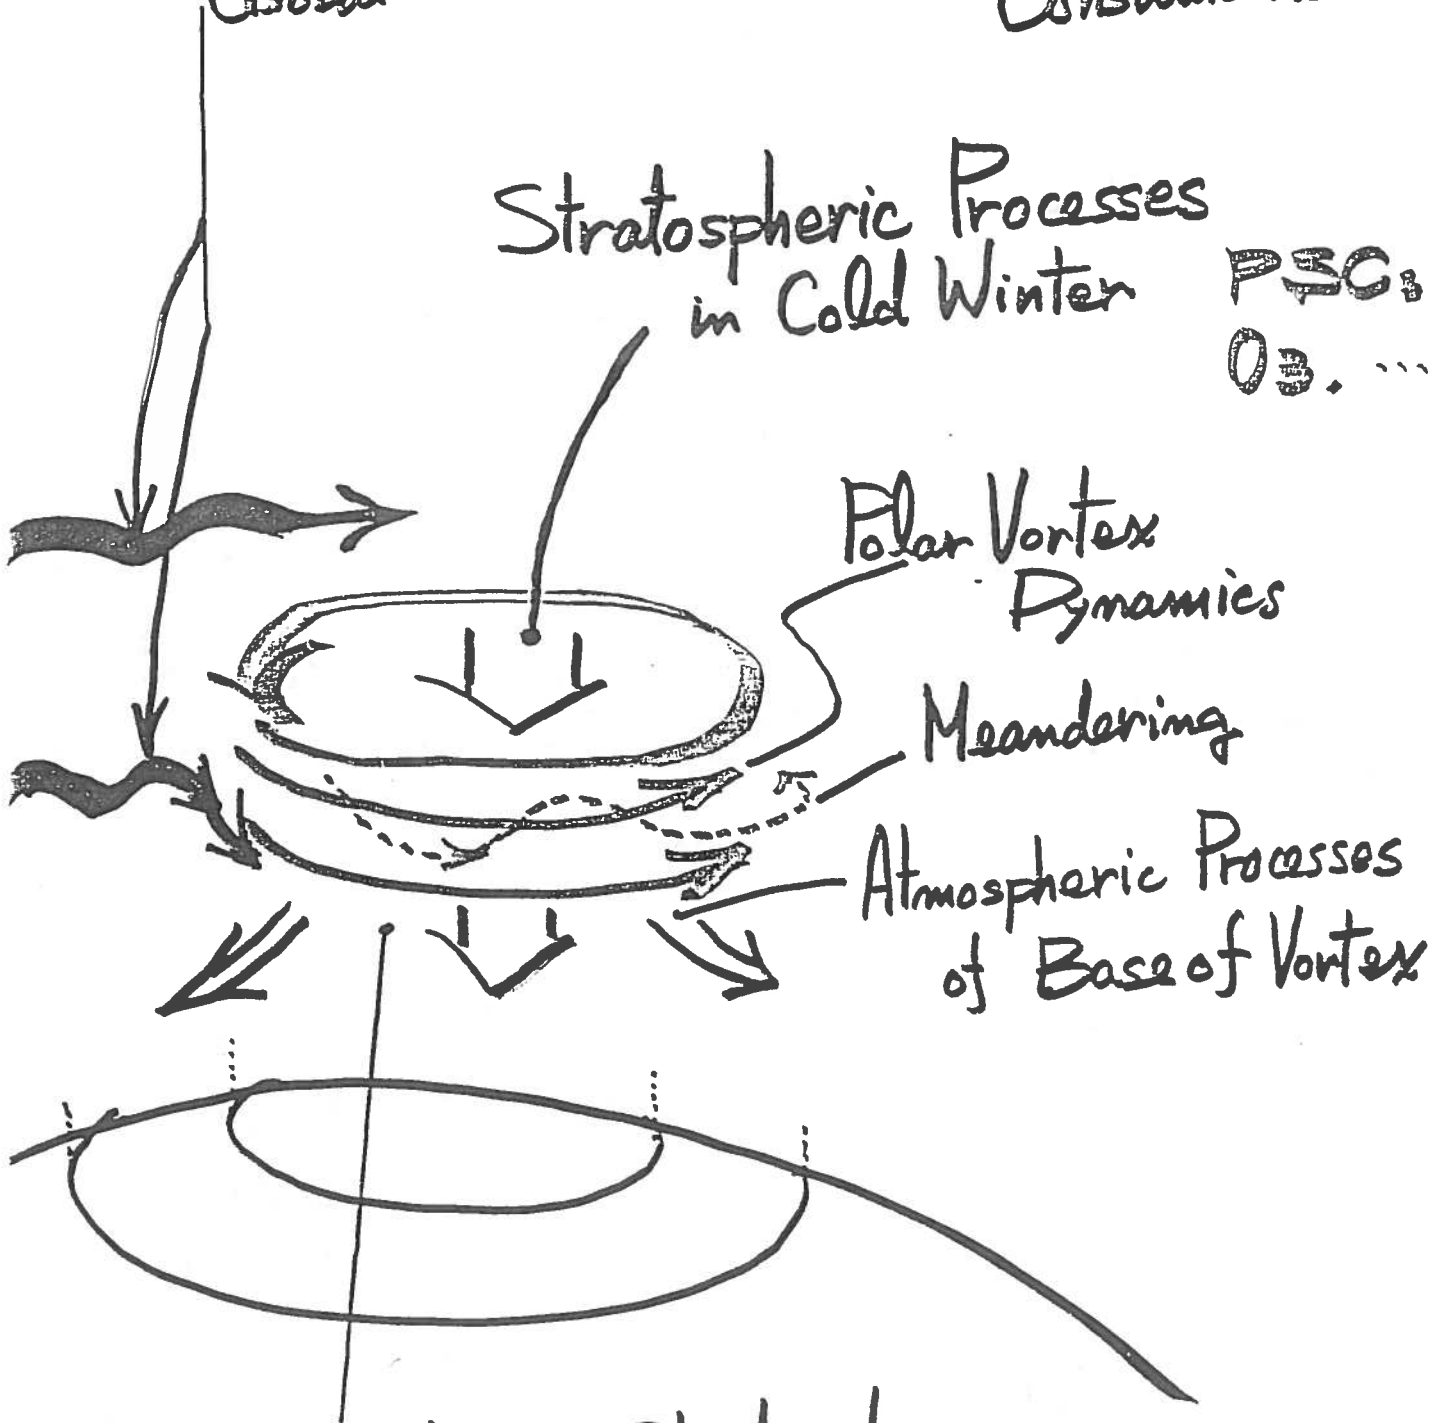 Stratospheric Processes
in Cold Winter
PSC,
O3. ...
Polar Vortex
Dynamics
Meandering
Atmospheric Processes
of Base of Vortex